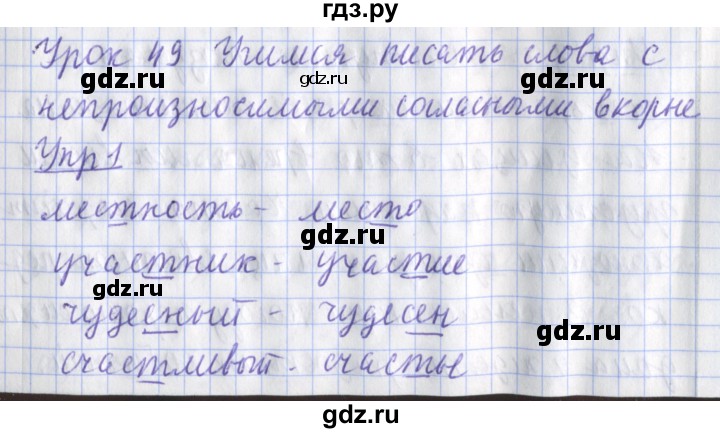 гдз.ру
Урок 49 Учимся писать слова с
gdz.ru
gdz.ru
непроизносимыми согласными в корне
Упр 1
gdz.ru
местность - место
gdz.ru
участник - участие
gdz.ru
чудесный - чудесен
gdz.ru
счастливый - счастье
gdz.ru
gdz.ru